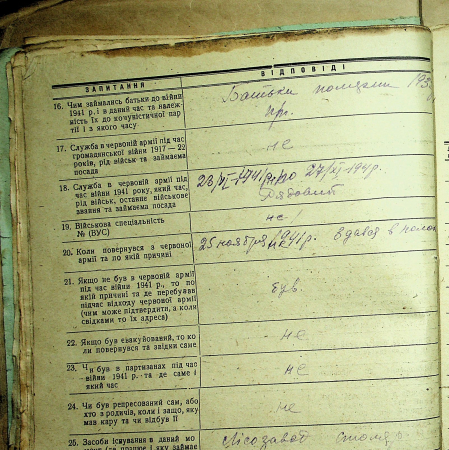 ЗАПИТАННЯ
ВІДПОВІДІ
16. Чим займались батьки до війни
1941 р. і в даний час та належ-
ність їх до комуністичної пар-
тії і з якого часу
Батьки померли 193
пр.
17. Служба в червоній армії під час
громадянської війни 1917—22
років, рід військ та займаєма
посада
не
18. Служба в червоній армії під
час війни 1941 року, який час,
рід військ, останнє військове
звання та займаєма посада
Рядовий
19. Військова спеціальність
№ (ВУС)
не
20. Коли повернувся з червоної
армії та по якій причині
25 ноября 1941 р. здався в полон
21. Якщо не був в червоній армії
під час війни 1941 р., то по
якій причині та де перебував
підчас відходу червоної армії
(чим може підтвердити, а коли
свідками то їх адреса)
22. Якщо був евакуйований, то ко
ли повернувся та звідки саме
не
23. Чи був в партизанах під час
війни 1941 р. та де саме і
який час
не
24. Чи був репресований сам, або
хто з родичів, коли і защо, яку
мав кару та чи відбув її
не
25. Засоби існування в даний мо
Лісозавод столяр